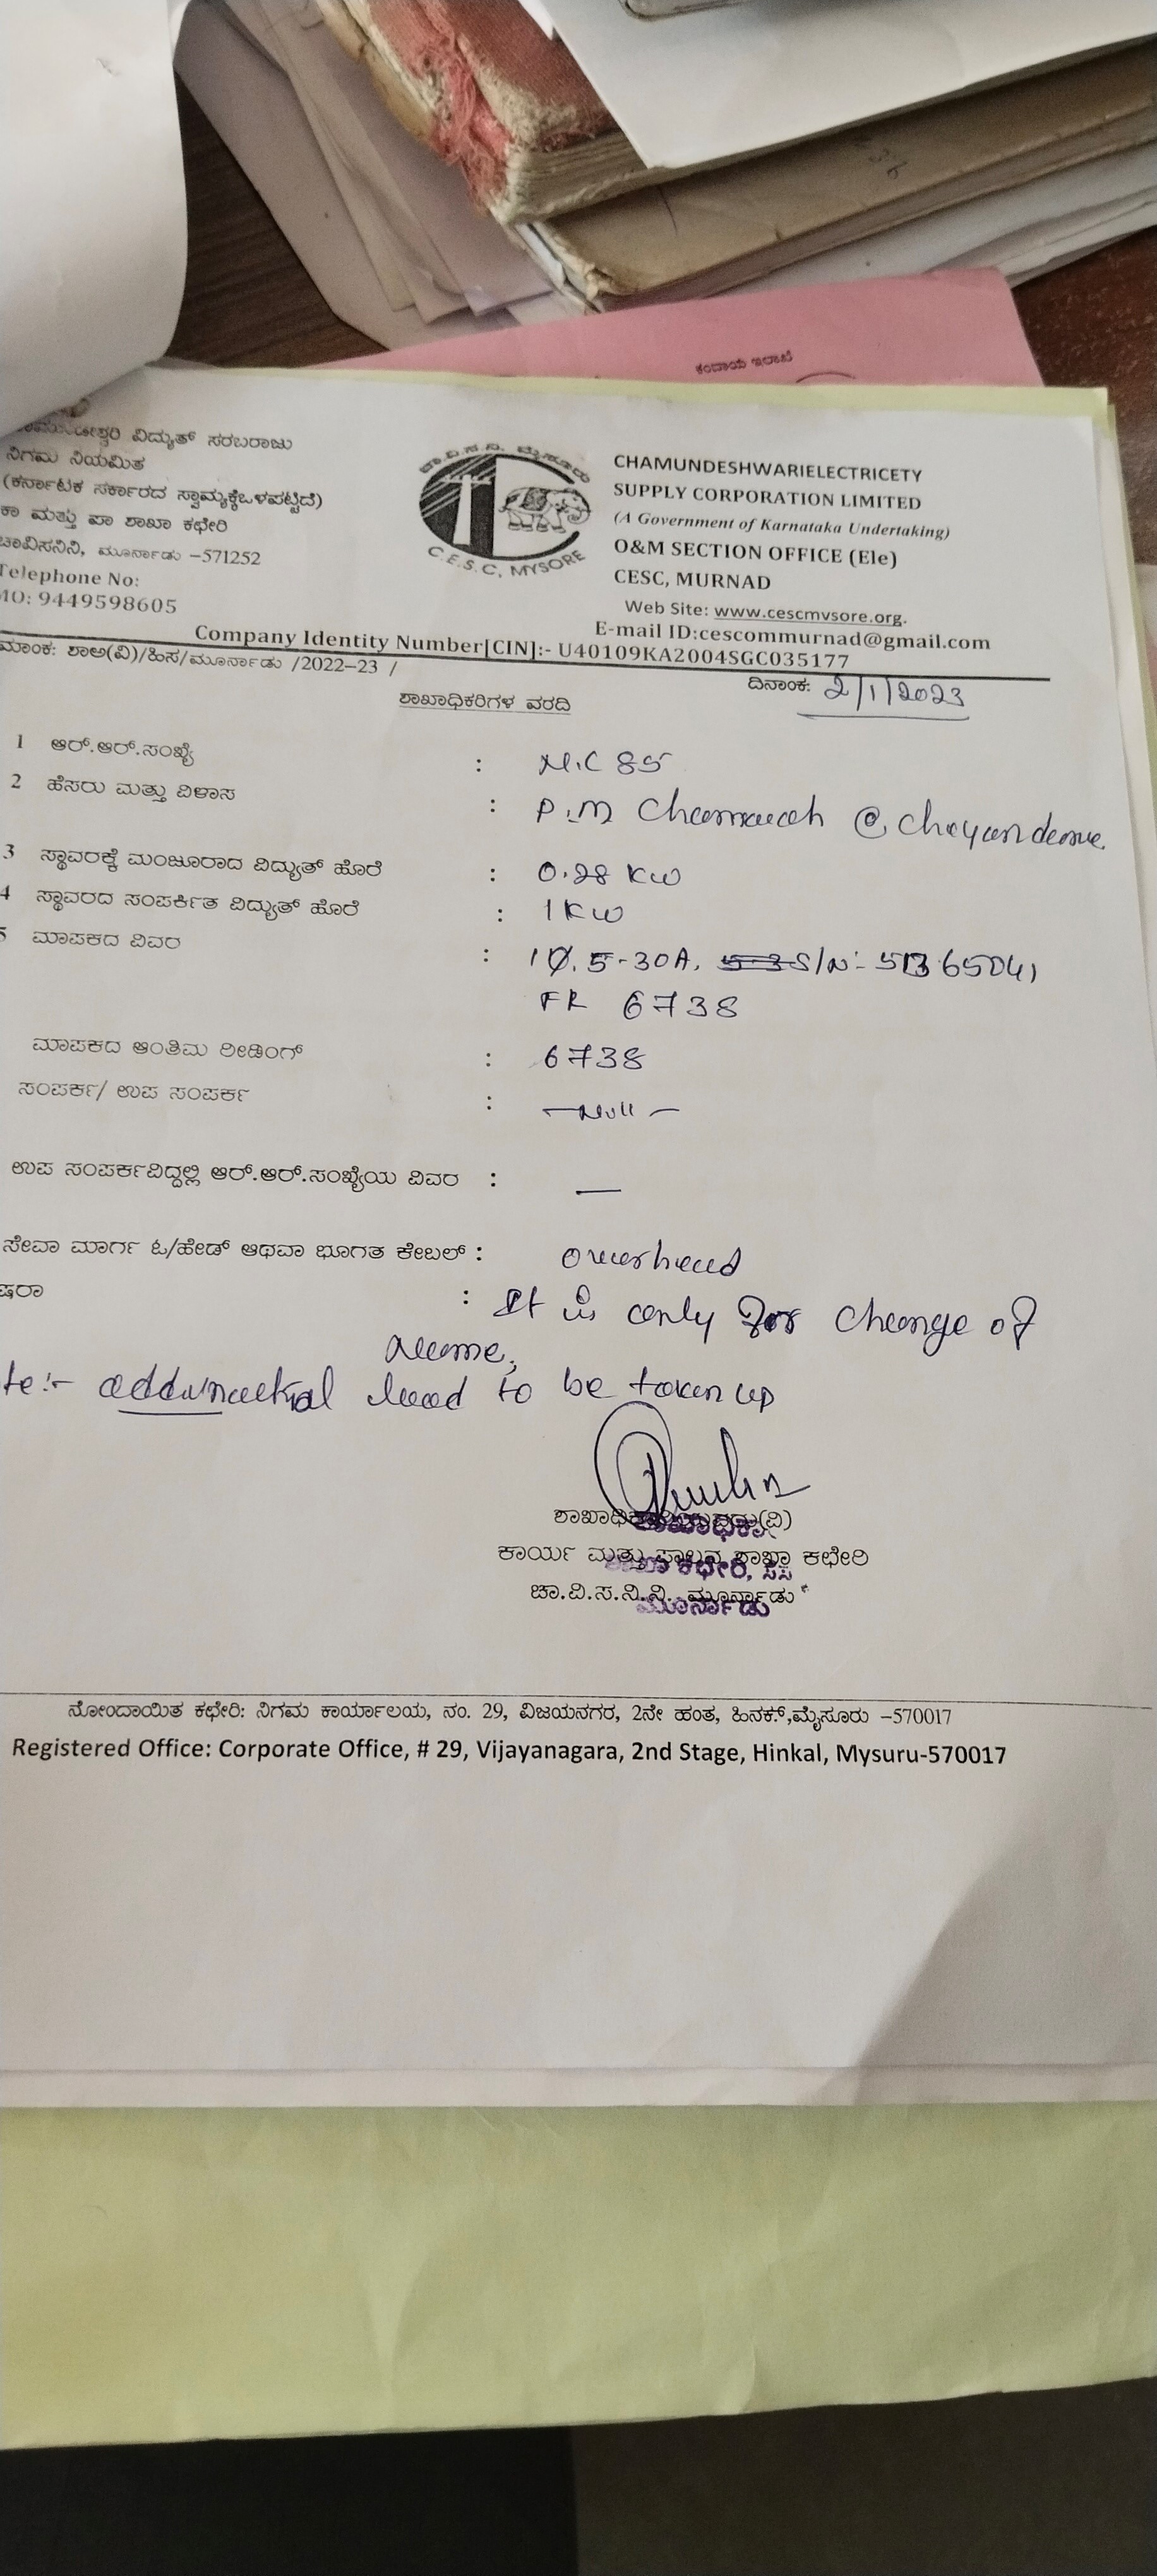 ಕಂದಾಯ ಇಲಾಖೆ
ವಿದ್ಯುತ್ ಸರಬರಾಜು
ನಿಗಮ ನಿಯಮಿತ
(ಕರ್ನಾಟಕ ಸರ್ಕಾರದ ಸ್ವಾಮ್ಯಕ್ಕೆಒಳಪಟ್ಟಿದೆ)
ಕಾ ಮತ್ತು ಪಾ ಶಾಖಾ ಕಛೇರಿ
ಚಾವಿಸನಿನಿ, ಮೂರ್ನಾಡು -571252
Telephone No:
MO: 9449598605
C.E.S.C, MYSORE
CHAMUNDESHWARIELECTRICETY
SUPPLY CORPORATION LIMITED
(A Government of Karnataka Undertaking)
O&M SECTION OFFICE (Ele)
CESC, MURNAD
Web Site: www.cescmvsore.org.
E-mail ID:cescommurnad@gmail.com
Company Identity Number[CIN]:- U40109KA2004SGC035177
ಮಾಂಕ: ಶಾಅ(ವಿ)/ಹಿಸ/ಮೂರ್ನಾಡು /2022-23 /
ದಿನಾಂಕ: 2/1/2023
ಶಾಖಾಧಿಕರಿಗಳ ವರದಿ
1 ಆರ್.ಆರ್.ಸಂಖ್ಯೆ : M.C 85
2 ಹೆಸರು ಮತ್ತು ವಿಳಾಸ : P.M @
3 ಸ್ಥಾವರಕ್ಕೆ ಮಂಜೂರಾದ ವಿದ್ಯುತ್ ಹೊರೆ : 0.28 KW
4 ಸ್ಥಾವರದ ಸಂಪರ್ಕಿತ ವಿದ್ಯುತ್ ಹೊರೆ : 1KW
5 ಮಾಪಕದ ವಿವರ : 1Ø, 5-30A, S/N:-
FR 6738
ಮಾಪಕದ ಅಂತಿಮ ರೀಡಿಂಗ್ : 6738
ಸಂಪರ್ಕ/ ಉಪ ಸಂಪರ್ಕ : —Null—
ಉಪ ಸಂಪರ್ಕವಿದ್ದಲ್ಲಿ ಆರ್.ಆರ್.ಸಂಖ್ಯೆಯ ವಿವರ : —
ಸೇವಾ ಮಾರ್ಗ ಓ/ಹೇಡ್ ಆಥವಾ ಭೂಗತ ಕೇಬಲ್ : overhead
ಷರಾ : It is only for change of
Name,
te:- load to be taken up
ಕಾರ್ಯ ಮತ್ತು ಪಾಲನ ಶಾಖಾ ಕಛೇರಿ
ಚಾ.ವಿ.ಸ.ನಿ.ನಿ. ಮೂರ್ನಾಡು
ನೋಂದಾಯಿತ ಕಛೇರಿ: ನಿಗಮ ಕಾರ್ಯಾಲಯ, ನಂ. 29, ವಿಜಯನಗರ, 2ನೇ ಹಂತ, ಹಿನಕ್,ಮೈಸೂರು -570017
Registered Office: Corporate Office, # 29, Vijayanagara, 2nd Stage, Hinkal, Mysuru-570017